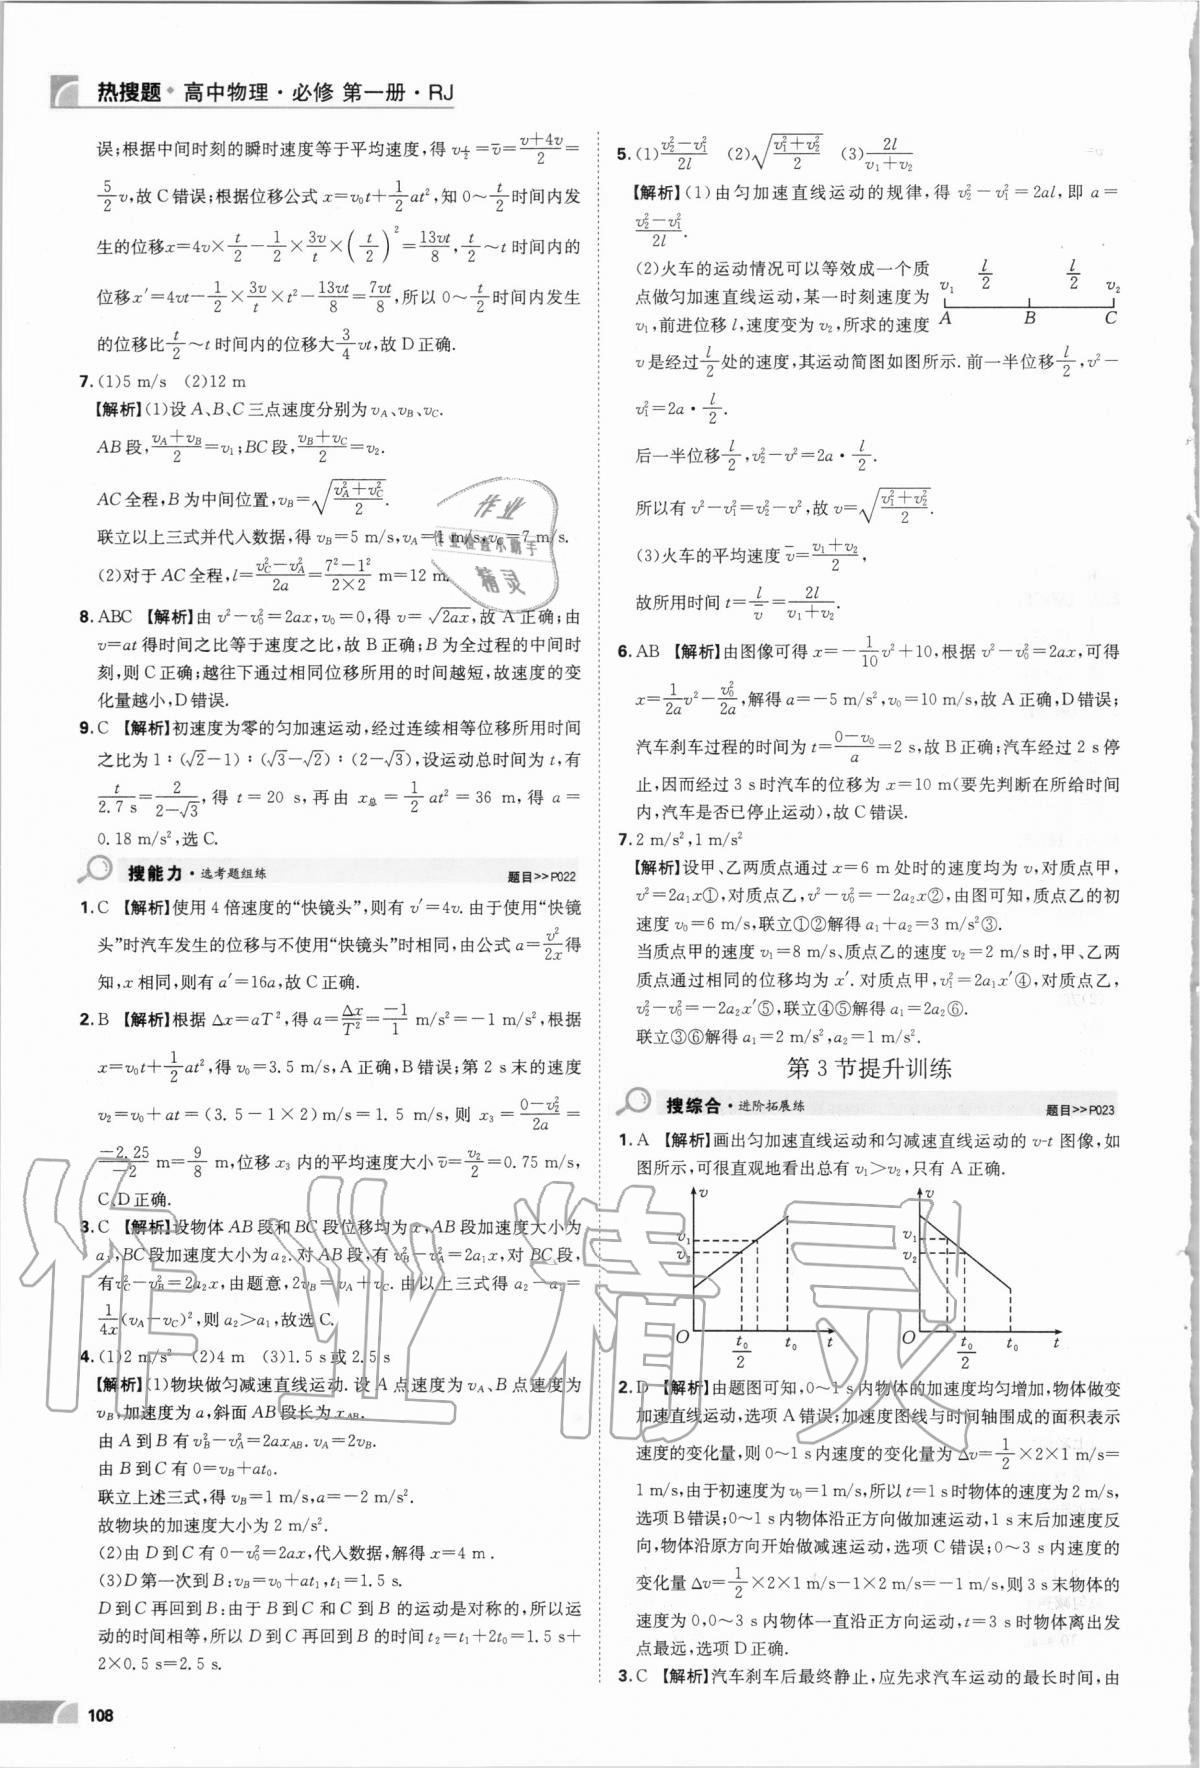 热搜题·高中物理·必修 第一册·RJ
误;根据中间时刻的瞬时速度等于平均速度,得 v_{t/2}=v̄=(v+4v)/2=
5/2 v,故 C 错误;根据位移公式 x=v₀t+1/2 at²,知 0～t/2 时间内发
生的位移x=4v×t/2−1/2×3v/t×(t/2)²=13vt/8,t/2～t 时间内的
位移x′=4vt−1/2×3v/t×t²−13vt/8=7vt/8,所以 0～t/2 时间内发生
的位移比 t/2～t 时间内的位移大 3/4 vt,故 D 正确.
7.(1)5 m/s (2)12 m
【解析】(1)设 A、B、C 三点速度分别为 v_A、v_B、v_C.
AB 段,(v_A+v_B)/2=v₁;BC 段,(v_B+v_C)/2=v₂.
AC 全程,B 为中间位置,v_B=√((v_A²+v_C²)/2).
联立以上三式并代入数据,得 v_B=5 m/s,v_A=1 m/s,v_C=7 m/s.
(2)对于 AC 全程,l=(v_C²−v_A²)/2a=(7²−1²)/(2×2) m=12 m.
8.ABC 【解析】由 v²−v₀²=2ax,v₀=0,得 v=√(2ax),故 A 正确;由
v=at 得时间之比等于速度之比,故 B 正确;B 为全过程的中间时
刻,则 C 正确;越往下通过相同位移所用的时间越短,故速度的变
化量越小,D 错误.
9.C 【解析】初速度为零的匀加速运动,经过连续相等位移所用时间
之比为 1∶(√2−1)∶(√3−√2)∶(2−√3),设运动总时间为 t,有
t/2.7 s=2/(2−√3),得 t=20 s,再由 x总=1/2 at²=36 m,得 a=
0.18 m/s²,选 C.
搜能力·选考题组练 题目>>P022
1.C 【解析】使用 4 倍速度的“快镜头”,则有 v′=4v.由于使用“快镜
头”时汽车发生的位移与不使用“快镜头”时相同,由公式 a=v²/2x 得
知,x 相同,则有 a′=16a,故 C 正确.
2.B 【解析】根据 Δx=aT²,得 a=Δx/T²=−1/1 m/s²=−1 m/s²,根据
x=v₀t+1/2 at²,得 v₀=3.5 m/s,A 正确,B 错误;第 2 s 末的速度
v₂=v₀+at=(3.5−1×2)m/s=1.5 m/s,则 x₃=(0−v₂²)/2a=
−2.25/−2 m=9/8 m,位移 x₃ 内的平均速度大小 v̄=v₂/2=0.75 m/s,
C、D 正确.
3.C 【解析】设物体 AB 段和 BC 段位移均为 x,AB 段加速度大小为
a₁,BC 段加速度大小为 a₂.对 AB 段,有 v_B²−v_A²=2a₁x,对 BC 段,
有v_C²−v_B²=2a₂x,由题意,2v_B=v_A+v_C.由以上三式得 a₂−a₁=
1/4x (v_A−v_C)²,则 a₂>a₁,故选 C.
4.(1)2 m/s² (2)4 m (3)1.5 s或 2.5 s
【解析】(1)物块做匀减速直线运动.设 A 点速度为 v_A、B 点速度为
v_B,加速度为 a,斜面 AB 段长为 x_AB.
由 A 到 B 有 v_B²−v_A²=2ax_AB.v_A=2v_B.
由 B 到 C 有 0=v_B+at₀.
联立上述三式,得 v_B=1 m/s,a=−2 m/s².
故物块的加速度大小为 2 m/s².
(2)由 D 到 C 有 0−v₀²=2ax,代入数据,解得 x=4 m.
(3)D 第一次到 B:v_B=v₀+at₁,t₁=1.5 s.
D 到 C 再回到 B:由于 B 到 C 和 C 到 B 的运动是对称的,所以运
动的时间相等,所以 D 到 C 再回到 B 的时间 t₂=t₁+2t₀=1.5 s+
2×0.5 s=2.5 s.
108
5.(1)(v₂²−v₁²)/2l (2)√((v₁²+v₂²)/2) (3)2l/(v₁+v₂)
【解析】(1)由匀加速直线运动的规律,得 v₂²−v₁²=2al,即 a=
(v₂²−v₁²)/2l.
(2)火车的运动情况可以等效成一个质
点做匀加速直线运动,某一时刻速度为
v₁,前进位移 l,速度变为 v₂,所求的速度
v₁ l/2 l/2 v₂
A B C
v 是经过 l/2 处的速度,其运动简图如图所示.前一半位移 l/2,v²−
v₁²=2a·l/2.
后一半位移 l/2,v₂²−v²=2a·l/2.
所以有 v²−v₁²=v₂²−v²,故 v=√((v₁²+v₂²)/2).
(3)火车的平均速度 v̄=(v₁+v₂)/2,
故所用时间 t=l/v̄=2l/(v₁+v₂).
6.AB 【解析】由图像可得 x=−1/10 v²+10,根据 v²−v₀²=2ax,可得
x=1/2a v²−v₀²/2a,解得 a=−5 m/s²,v₀=10 m/s,故 A 正确,D 错误;
汽车刹车过程的时间为 t=(0−v₀)/a=2 s,故 B 正确;汽车经过 2 s 停
止,因而经过 3 s 时汽车的位移为 x=10 m(要先判断在所给时间
内,汽车是否已停止运动),故 C 错误.
7.2 m/s²,1 m/s²
【解析】设甲、乙两质点通过 x=6 m 处时的速度均为 v,对质点甲,
v²=2a₁x①,对质点乙,v²−v₀²=−2a₂x②,由图可知,质点乙的初
速度 v₀=6 m/s,联立①②解得 a₁+a₂=3 m/s²③.
当质点甲的速度 v₁=8 m/s、质点乙的速度 v₂=2 m/s 时,甲、乙两
质点通过相同的位移均为 x′.对质点甲,v₁²=2a₁x′④,对质点乙,
v₂²−v₀²=−2a₂x′⑤,联立④⑤解得 a₁=2a₂⑥.
联立③⑥解得 a₁=2 m/s²,a₂=1 m/s².
第 3 节提升训练
搜综合·进阶拓展练 题目>>P023
1.A 【解析】画出匀加速直线运动和匀减速直线运动的 v-t 图像,如
图所示,可很直观地看出总有 v₁>v₂,只有 A 正确.
v v₁ v₂ O t₀/2 t₀ t
v v₁ v₂ O t₀/2 t₀ t
2.D 【解析】由题图可知,0～1 s 内物体的加速度均匀增加,物体做变
加速直线运动,选项 A 错误;加速度图线与时间轴围成的面积表示
速度的变化量,则 0～1 s 内速度的变化量为 Δv=1/2×2×1 m/s=
1 m/s,由于初速度为 v₀=1 m/s,所以 t=1 s 时物体的速度为 2 m/s,
选项 B 错误;0～1 s 内物体沿正方向做加速运动,1 s 末后加速度反
向,物体沿原方向开始做减速运动,选项 C 错误;0～3 s 内速度的
变化量 Δv=1/2×2×1 m/s−1×2 m/s=−1 m/s,则 3 s 末物体的
速度为 0,0～3 s 内物体一直沿正方向运动,t=3 s 时物体离出发
点最远,选项 D 正确.
3.C 【解析】汽车刹车后最终静止,应先求汽车运动的最长时间,由
作业
作业检查小助手
精灵
作业精灵